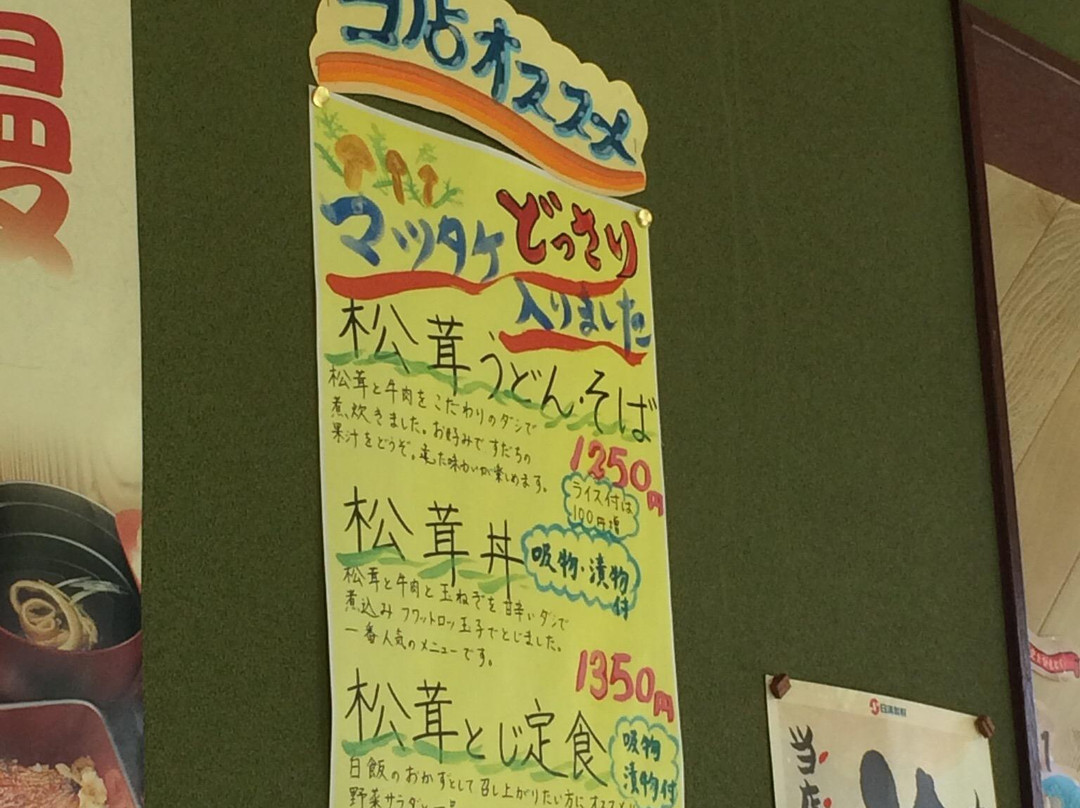 当店オススメ
マツタケどっさり
入りました
松茸うどん・そば
松茸と牛肉をこだわりのダシで
煮炊きました。お好みですだちの
果汁をどうぞ。
味わいが楽しめます。
1250円
ライス付は
100円増
松茸丼
吸物・漬物
付
松茸と牛肉と玉ねぎを甘辛いダシで
煮込みフワットロッ玉子でとじました。
一番人気のメニューです。
1350円
松茸とじ定食
吸物
漬物付
白飯のおかずとして召し上がりたい方にオススメ
野菜サラダ
日清製粉
当店